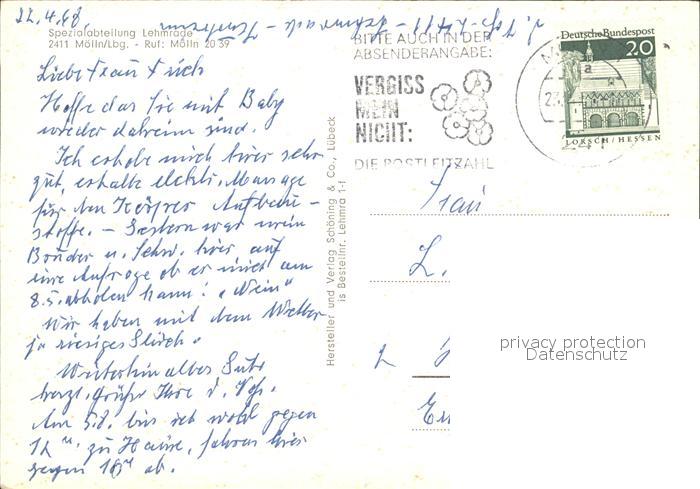 22.4.68.
Spezialabteilung Lehmrade
2411 Mölln/Lbg. - Ruf: Mölln 20 39
Liebe Frau
Hoffe das Sie mit Baby
wieder daheim sind.
Ich erhole mich hier sehr
gut, erhalte elektr. Massage
für den Körper Aufbau-
stoffe. – Gestern war mein
Bruder u. Schw. hier auf
eine Anfrage ob er mich am
8.5. abholen kann: "Nein"
Wir haben mit dem Wetter
ja riesiges Glück.
Weiterhin alles Gute
herzl. Grüße Ihre
Am 5.8. bin ich wohl gegen
zu Hause, fahren hier
gegen ab.
Hersteller und Verlag Schöning & Co., Lübeck
is Bestellnr. Lehmra 1-f
BITTE AUCH IN DER
ABSENDERANGABE:
VERGISS
MEIN
NICHT:
DIE POSTLEITZAHL
Deutsche Bundespost
20
LORSCH/HESSEN
a
241
Frau
L.
privacy protection
Datenschutz